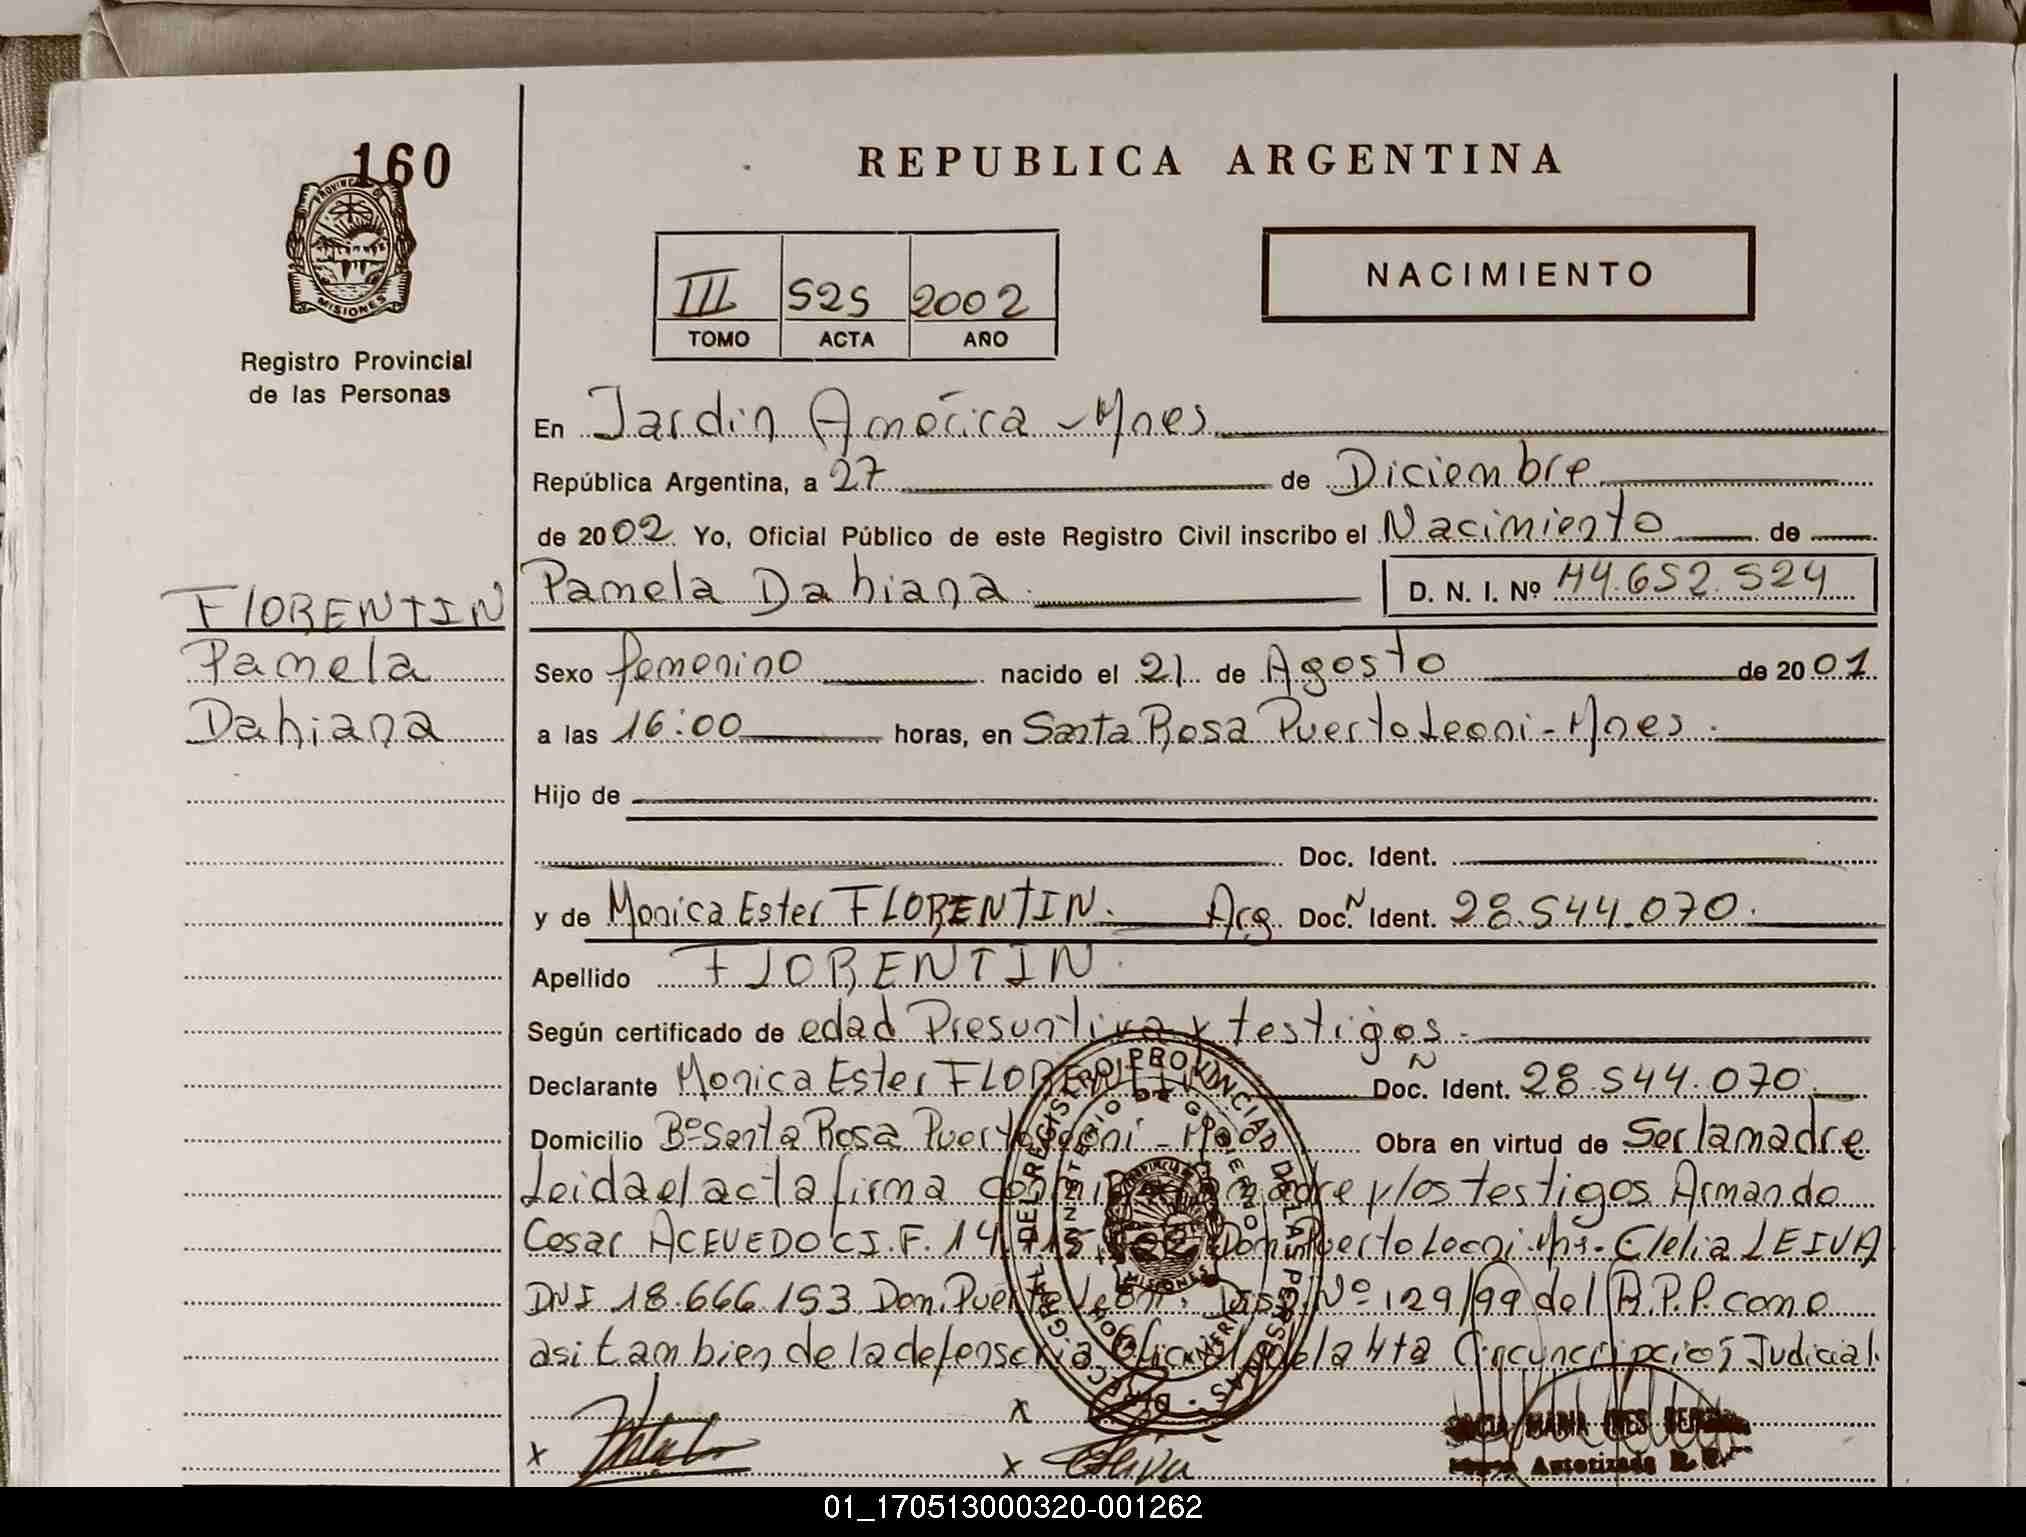 160
REPUBLICA ARGENTINA
PROVINCIA DE
MISIONES
Registro Provincial
de las Personas
III 525 2002
TOMO ACTA AÑO
NACIMIENTO
En Jardin América - Mnes
República Argentina, a 27 de Diciembre
de 2002 Yo, Oficial Público de este Registro Civil inscribo el Nacimiento de
FLORENTIN
Pamela
Dahiana
Pamela Dahiana. D. N. I. Nº 44.652.524
Sexo femenino nacido el 21 de Agosto de 2001
a las 16:00 horas, en Santa Rosa Puerto Leoni - Mnes.
Hijo de
Doc. Ident.
y de Monica Ester FLORENTIN. Arg. Doc. N Ident. 28.544.070.
Apellido FLORENTIN.
Según certificado de edad Presuntiva y testigos.-
Declarante Monica Ester FLORENTIN Doc. N Ident. 28.544.070.
Domicilio Bº Santa Rosa Puerto Leoni - Obra en virtud de Ser la madre
Leida el acta firma madre y los testigos Armando
Cesar ACEVEDO C.I.F. 14. Dom. Puerto Leoni. Mns. Clelia LEIVA
DNI 18.666.153 Dom. Puerto Leoni. Disp. Nº 129/99 del R.P.P. como
asi tambien de la defensoria Oficial de la 4ta Circunscripcion Judicial.
DIRECC. GRAL. DEL REGISTRO PROVINCIAL DE LAS PERSONAS
MINISTERIO DE GOBIERNO
MISIONES
x
x x Leiva
MARIA INES
Autorizada R. P.
01_170513000320-001262